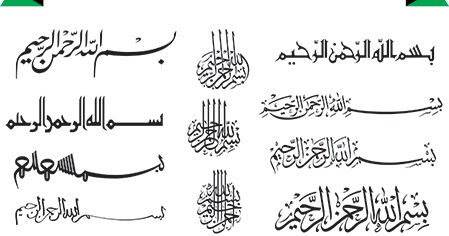 بسم الله الرحمن الرحيم
بسم الله الرحمن الرحيم
بسم الله الرحمن الرحيم
بسم الله الرحمن الرحيم
بسم الله الرحمن الرحيم
بسم الله الرحمن الرحيم
بسم الله الرحمن الرحيم
بسم الله الرحمن الرحيم
بسم الله الرحمن الرحيم
بسم
بسم الله الرحمن الرحيم